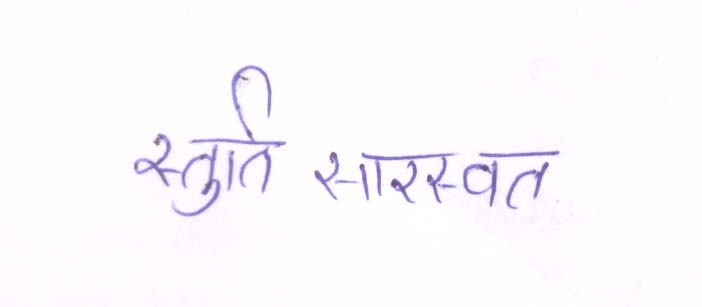 स्तुति सारस्वत